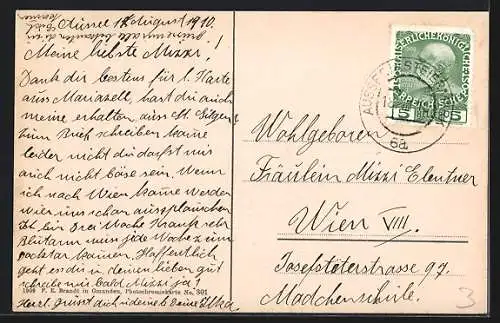 Aussee 18. August 1910.
Meine liebste Mizzi!
Dank dir bestens für l. Karte
aus Mariazell, hast du auch
meine erhalten, aus St. Gilgen
zum Brief schreiben kome
leider nicht du darfst mir
auch nicht böse sein. Wenn
ich nach Wien kome werden
wir uns schon aussplauschen
Ich bin drei Woche krank sehr
Blutarm mus jede Woche zum
Doctor komen. Hoffentlich
geht es dir u. deinen lieben gut
schreibe mir bald Mizzi ja!
Herzl. grüsst dich u. deine l. deine
1909 F. E. Brandt in Gmunden, Photochromiekarte No. 301
KAISERLICHE KÖNIGLICHE
ÖSTERREICHISCHE POST
5 5
AUSSEE IN STEIERMARK
6a
Wohlgeboren
Fräulein Mizzi Elentner
Wien VIII.
Josefstöterstrasse 97.
Mädchenschule.
3